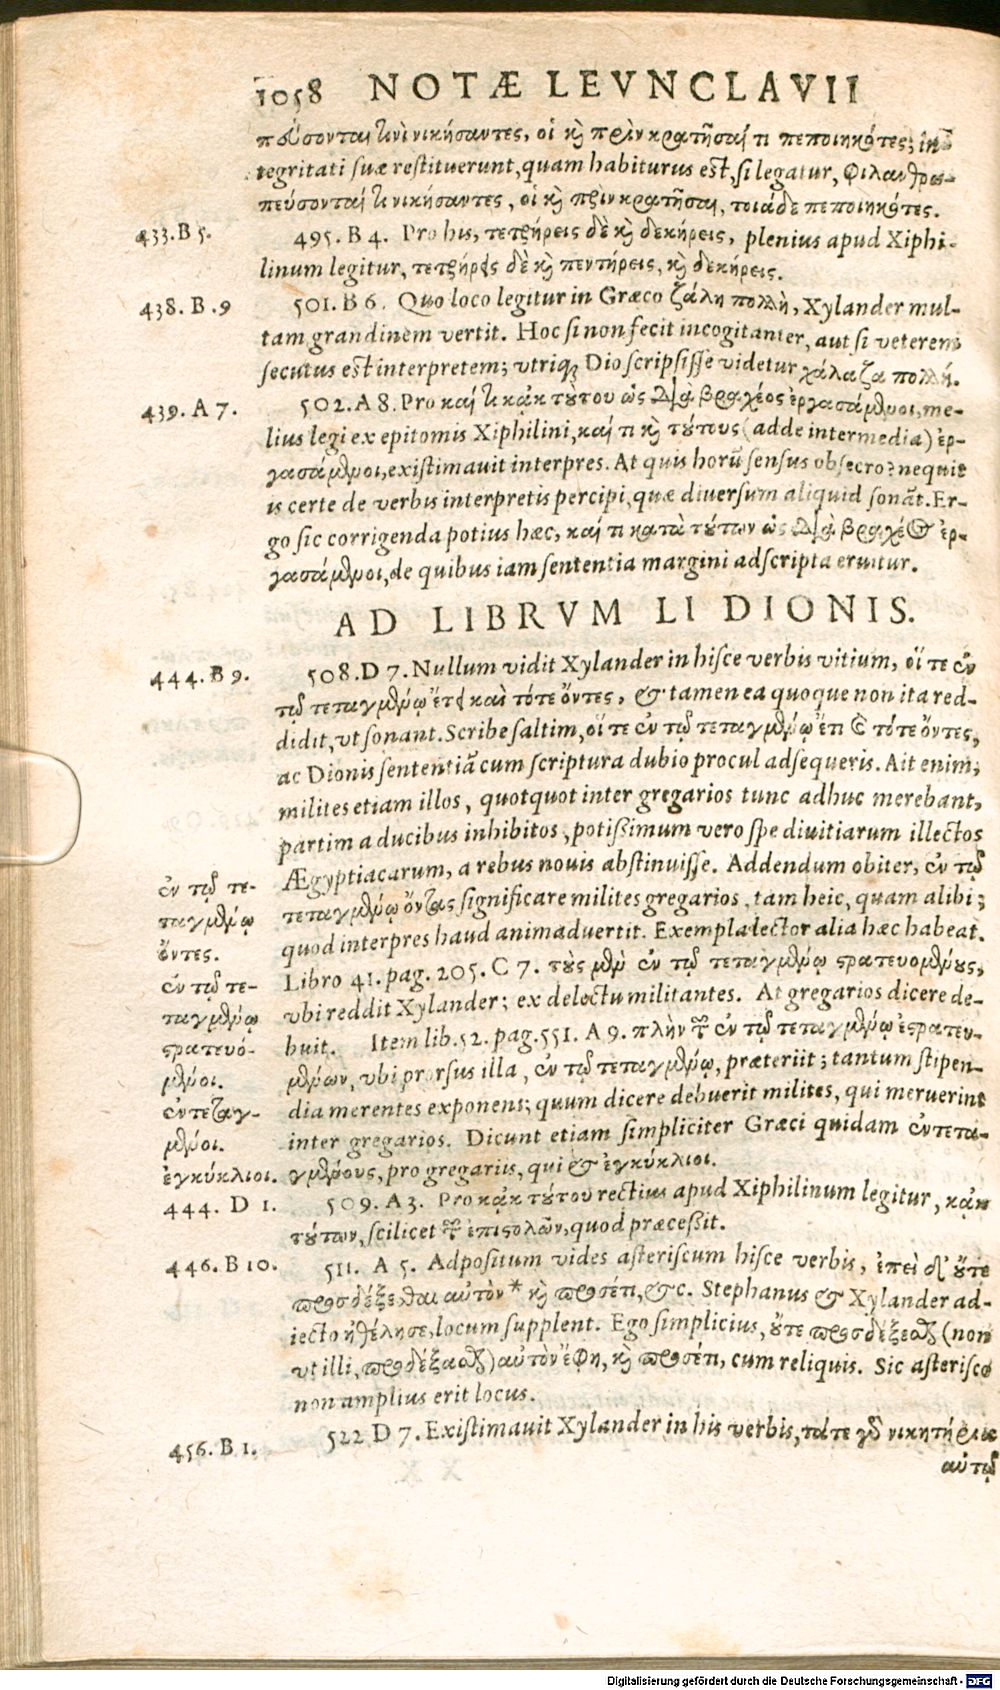 1058 NOTÆ LEVNCLAVII
πεύσονται κἂν νικήσαντες, οἱ καὶ πρὶν κρατῆσαί τι πεποιηκότες; in
tegritati suæ restituerunt, quam habiturus est, si legatur, φιλανθρω-
πεύσονταί τι νικήσαντες, οἱ καὶ πρὶν κρατῆσαι, τοιάδε πεποιηκότες.
433. B 5. 495. B 4. Pro his, τετρήρεις δὲ καὶ δεκήρεις, plenius apud Xiphi-
linum legitur, τετρήρεις δὲ καὶ πεντήρεις, καὶ δεκήρεις.
438. B. 9 501. B 6. Quo loco legitur in Græco ζάλη πολλὴ, Xylander mul-
tam grandinem vertit. Hoc si non fecit incogitanter, aut si veterem
secutus est interpretem; vtriq; Dio scripsisse videtur χάλαζα πολλή.
439. A 7. 502. A 8. Pro καί τι κἀκ τούτου ὡς διὰ βραχέος ἐργασάμενοι, me-
lius legi ex epitomis Xiphilini, καί τι καὶ τούτους (adde intermedia) ἐρ-
γασάμενοι, existimauit interpres. At quis horũ sensus obsecro? nequit
is certe de verbis interpretis percipi, quæ diuersum aliquid sonãt. Er-
go sic corrigenda potius hæc, καί τι κατὰ τούτων ὡς διὰ βραχέος ἐρ-
γασάμενοι, de quibus iam sententia margini adscripta eruitur.
AD LIBRVM LI DIONIS.
444. B 9. 508. D 7. Nullum vidit Xylander in hisce verbis vitium, οἵ τε ἐν
τῷ τεταγμένῳ ἔτει καὶ τότε ὄντες, & tamen ea quoque non ita red-
didit, vt sonant. Scribe saltim, οἵ τε ἐν τῷ τεταγμένῳ ἔτι καὶ τότε ὄντες,
ac Dionis sententiã cum scriptura dubio procul adsequeris. Ait enim;
milites etiam illos, quotquot inter gregarios tunc adhuc merebant,
partim a ducibus inhibitos, potißimum vero spe diuitiarum illectos
Ægyptiacarum, a rebus nouis abstinuisse. Addendum obiter, ἐν τῷ
τεταγμένῳ ὄντας significare milites gregarios, tam heic, quam alibi;
quod interpres haud animaduertit. Exempla lector alia hæc habeat.
Libro 41. pag. 205. C 7. τοὺς μὲν ἐν τῷ τεταγμένῳ στρατευομένους,
vbi reddit Xylander; ex delectu militantes. At gregarios dicere de-
buit. Item lib. 52. pag. 551. A 9. πλὴν τῶν ἐν τῷ τεταγμένῳ ἐστρατευ-
μένων, vbi prorsus illa, ἐν τῷ τεταγμένῳ, præteriit; tantum stipen-
dia merentes exponens; quum dicere debuerit milites, qui meruerint
inter gregarios. Dicunt etiam simpliciter Græci quidam ἐντετα-
γμένους, pro gregariis, qui & ἐγκύκλιοι.
ἐν τῷ τε-
ταγμένῳ
ὄντες.
ἐν τῷ τε-
ταγμένῳ
στρατευό-
μενοι.
ἐντεταγ-
μένοι.
ἐγκύκλιοι.
444. D 1. 509. A 3. Pro κἀκ τούτου rectius apud Xiphilinum legitur, κἀκ
τούτων, scilicet τῶν ἐπιστολῶν, quod præceßit.
446. B 10. 511. A 5. Adpositum vides asteriscum hisce verbis, ἐπεὶ δ' οὔτε
προσδέξεσθαι αὐτὸν * καὶ προσέτι, &c. Stephanus & Xylander ad-
iecto ἠθέλησε, locum supplent. Ego simplicius, οὔτε προσδέξεσθαι (non
vt illi, προσδέξασθαι) αὐτὸν ἔφη, καὶ προσέτι, cum reliquis. Sic asterisco
non amplius erit locus.
456. B 1. 522 D 7. Existimauit Xylander in his verbis, τά τε γὰρ νικητήρια
αὐτῷ
Digitalisierung gefördert durch die Deutsche Forschungsgemeinschaft - DFG